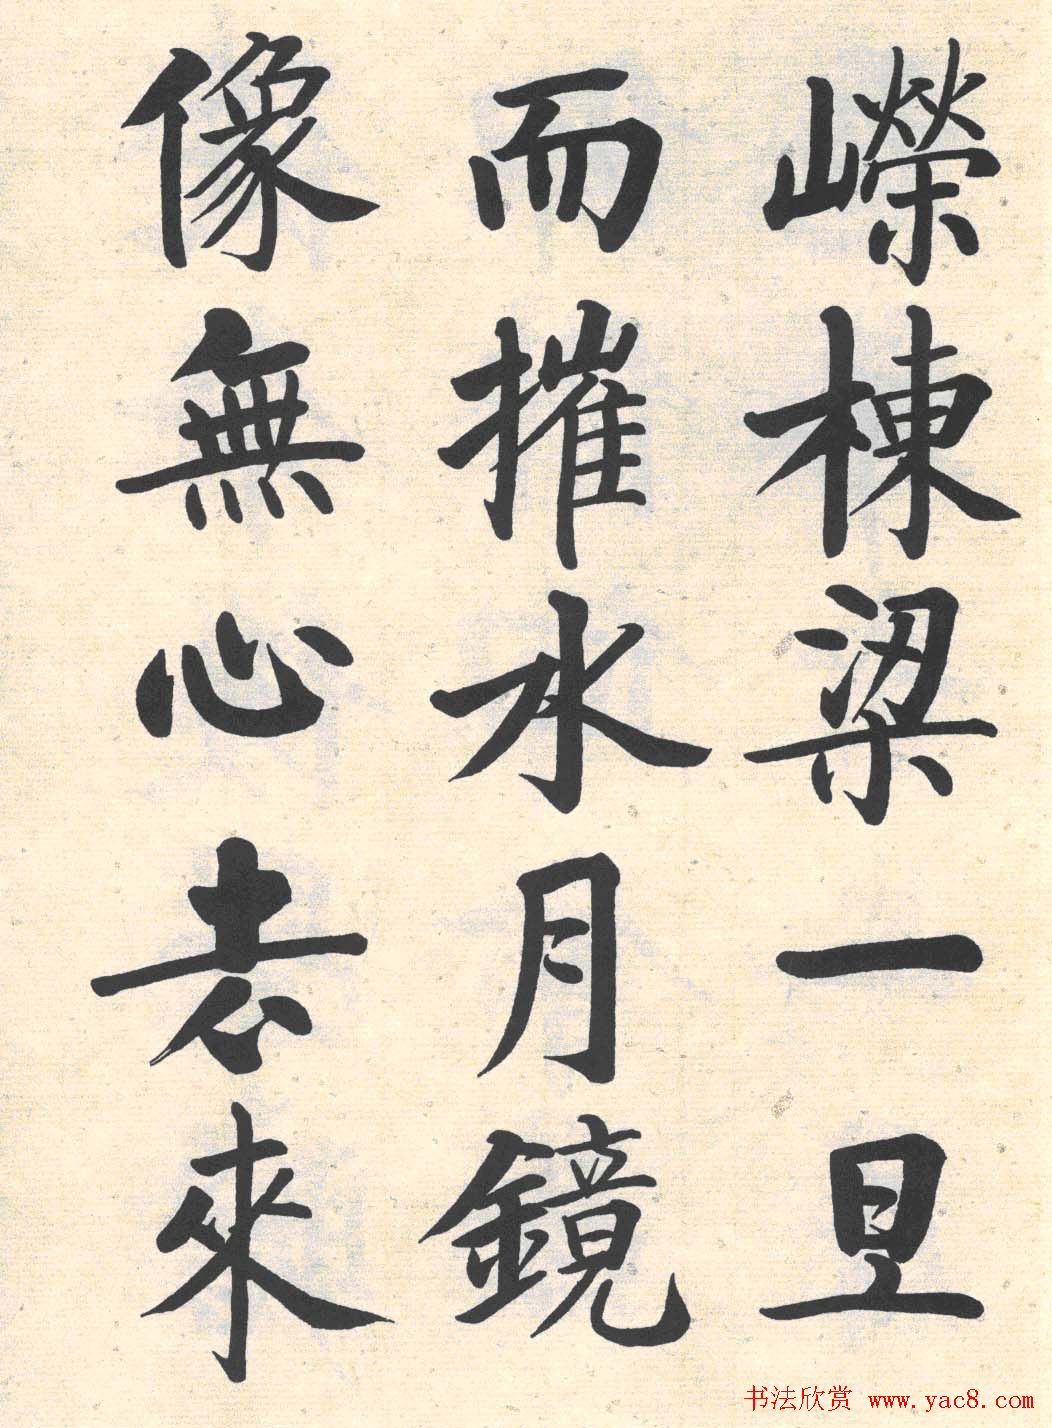 嶸棟梁一旦
而摧水月鏡
像無心去來
书法欣赏 www.yac8.com